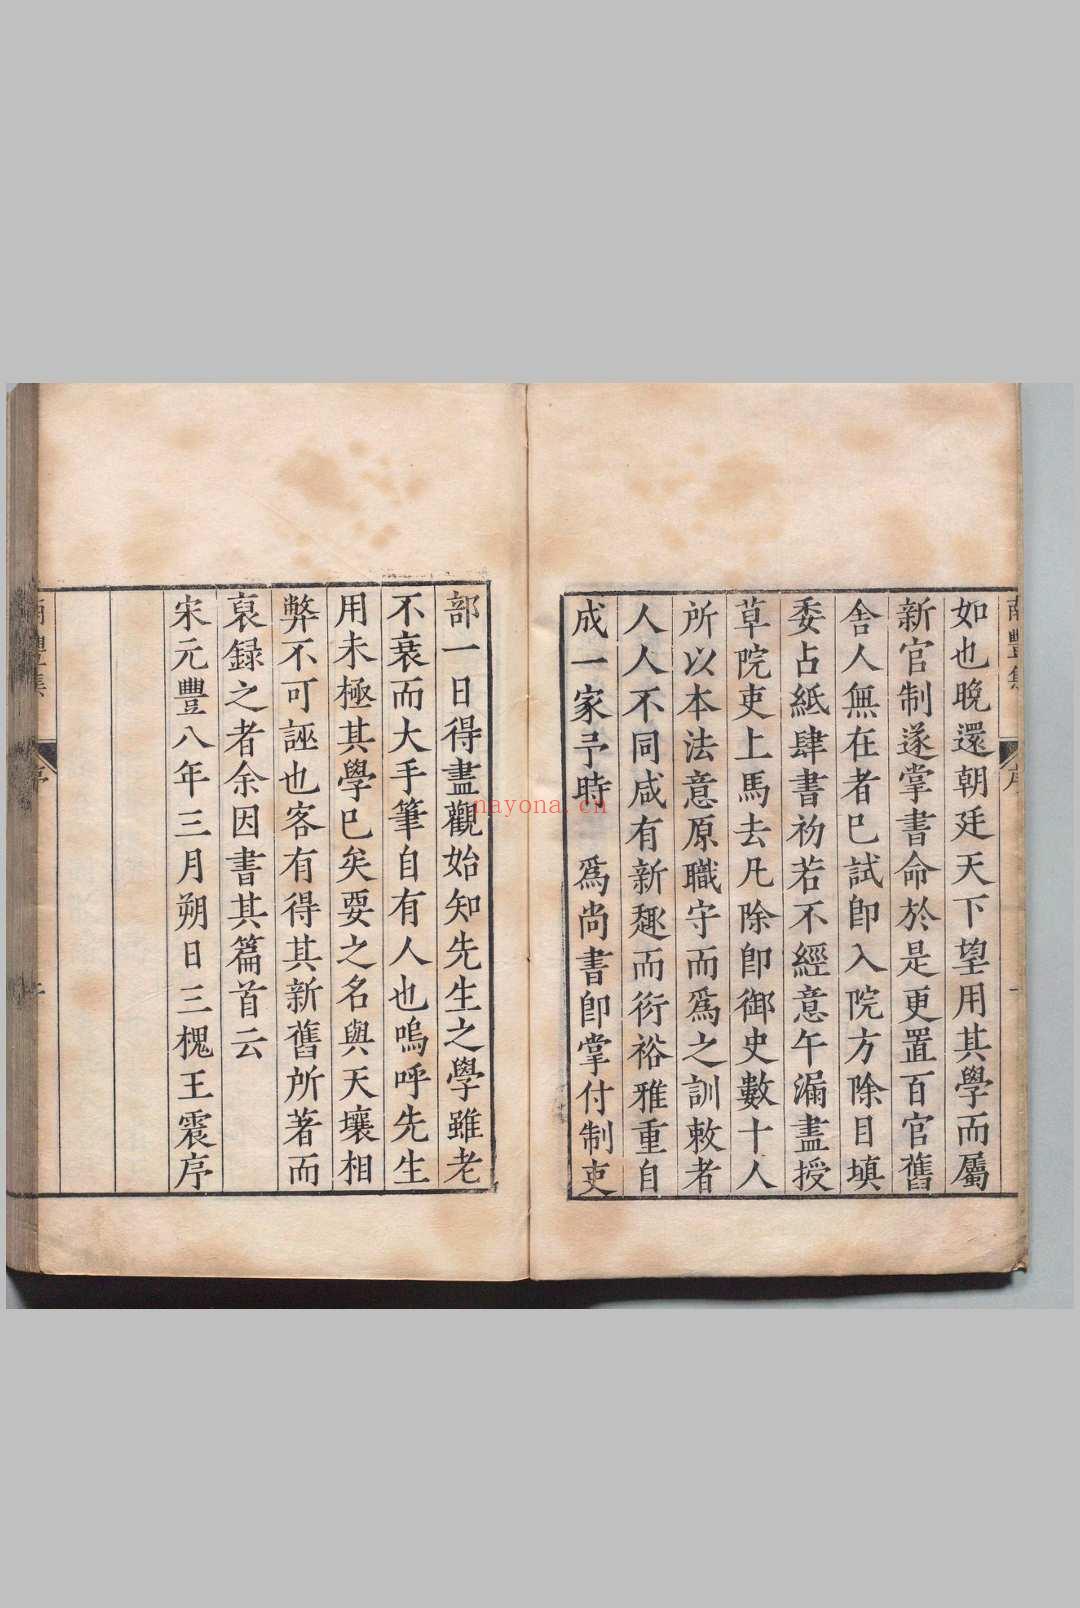 南豐集
序
如也晚還朝廷天下望用其學而屬
新官制遂掌書命於是更置百官舊
舍人無在者已試卽入院方除目填
委占紙肆書初若不經意午漏盡授
草院吏上馬去凡除卽御史數十人
所以本法意原職守而爲之訓敕者
人人不同咸有新趣而衍裕雅重自
成一家予時 爲尚書卽掌付制吏
部一日得盡觀始知先生之學雖老
不衰而大手筆自有人也嗚呼先生
用未極其學已矣要之名與天壤相
弊不可誣也客有得其新舊所著而
裒録之者余因書其篇首云
宋元豐八年三月朔日三槐王震序
南豐集
序
nayona.cn